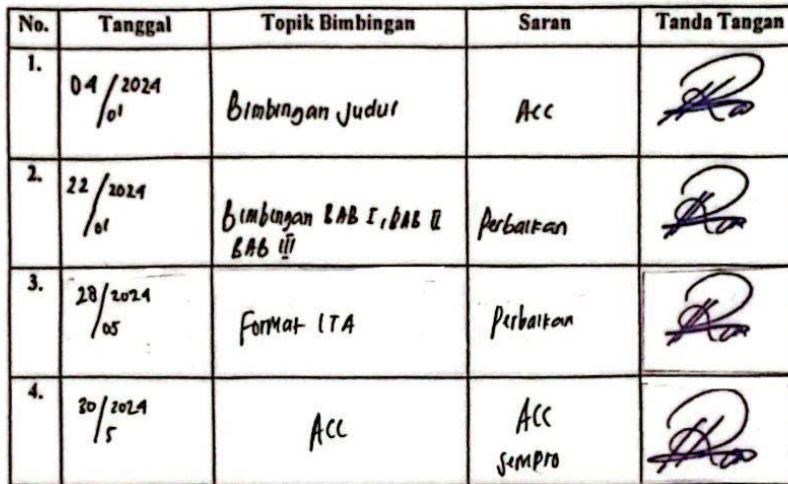 No. Tanggal Topik Bimbingan Saran Tanda Tangan
1. 04/2024/01 Bimbingan Judul Acc
2. 22/2024/01 Bimbingan BAB I, BAB II Perbaikan
BAB III
3. 28/2024/05 Format LTA Perbaikan
4. 30/2024/5 Acc Acc
Sempro